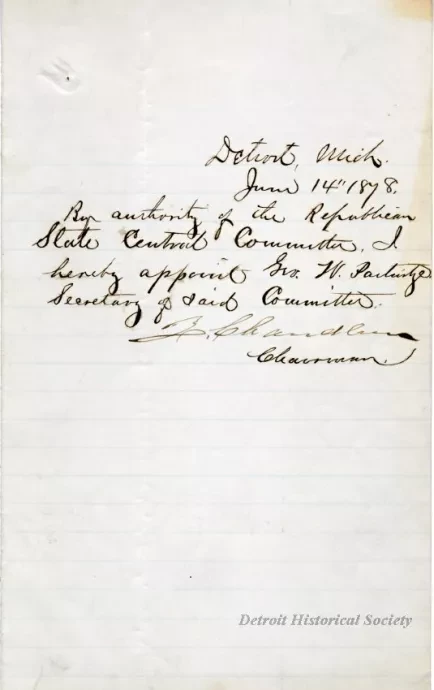 Detroit, Mich.
June 14" 1878.
By authority of the Republican
State Central Committee, I
hereby appoint Geo. W. Partridge
Secretary of said Committee.
Z. Chandler
Chairman.
Detroit Historical Society